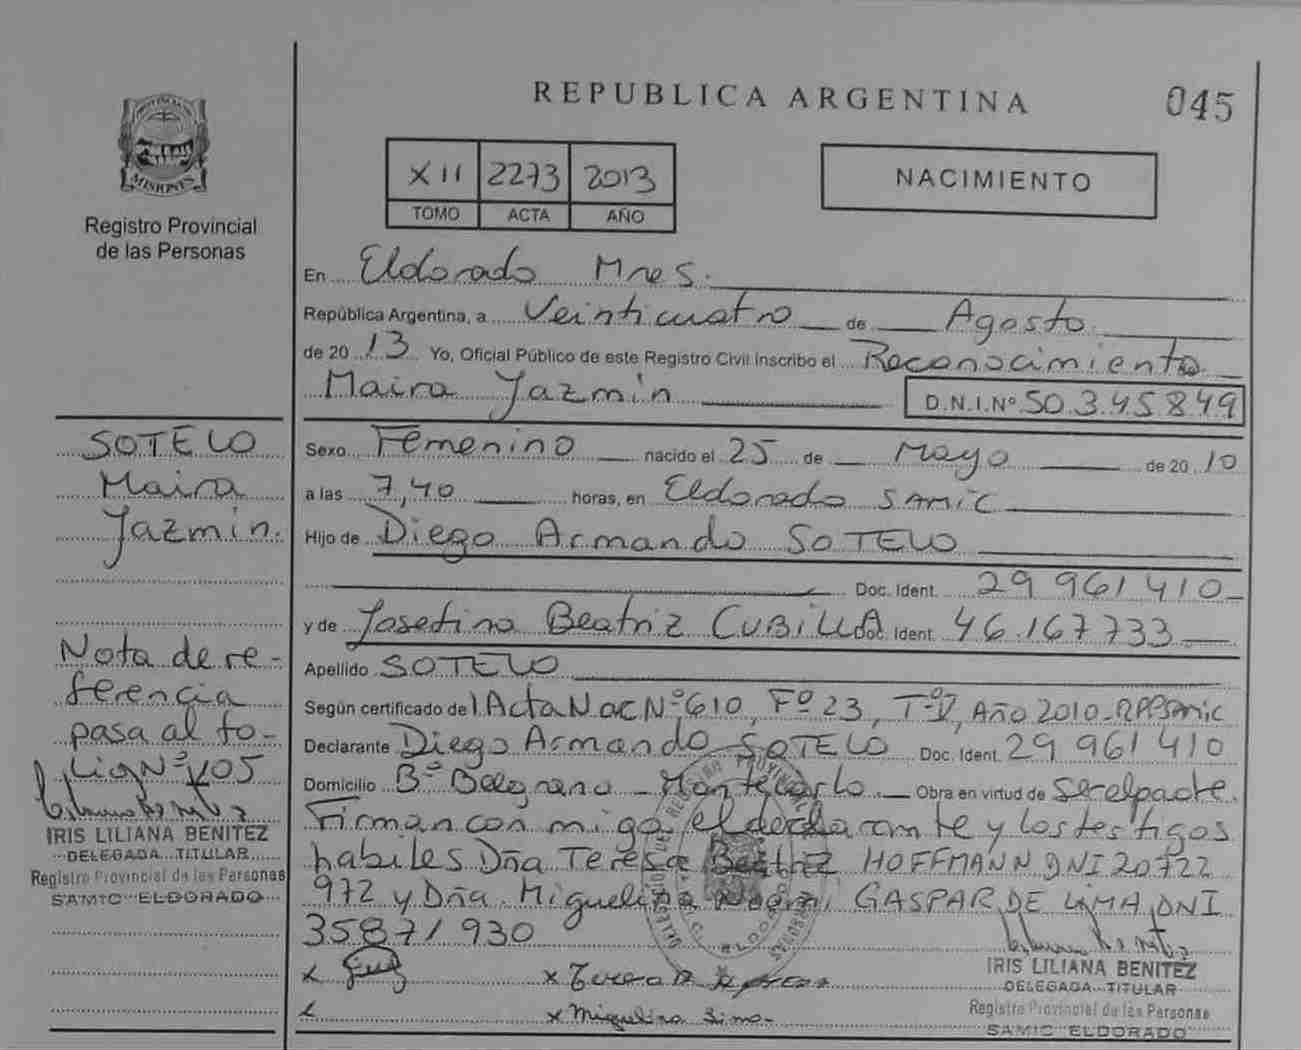 REPUBLICA ARGENTINA
045
MISIONES
Registro Provincial
de las Personas
XII 2273 2013
TOMO ACTA AÑO
NACIMIENTO
En Eldorado Mnes.
República Argentina, a Veinticuatro de Agosto
de 20 13 Yo, Oficial Público de este Registro Civil Inscribo el Reconocimiento
Maira Yazmin D.N.I.Nº 50.345849
Sexo Femenino nacido el 25 de Mayo de 20 10
a las 7,40 horas, en Eldorado SAMIC
Hijo de Diego Armando SOTELO
Doc. Ident. 29 961 410
y de Josefina Beatriz CUBILLA Doc. Ident. 46.167733
Apellido SOTELO
Según certificado de Acta Nac Nº 610, Fº 23, Tº V, Año 2010-RPPSamic
Declarante Diego Armando SOTELO Doc. Ident. 29 961 410
Domicilio Bº Belgrano - Montecarlo Obra en virtud de Ser el padre.
Firman conmigo, el declarante y los testigos
habiles Dña Teresa Beatriz HOFFMANN DNI 20722
972 y Dña. Miguelina Noemi GASPAR DE LIMA DNI
35871930
x
x Teresa
x
x Miguelina
IRIS LILIANA BENITEZ
DELEGADA TITULAR
Registro Provincial de las Personas
SAMIC ELDORADO
SOTELO
Maira
Yazmin.
Nota de re-
ferencia
pasa al fo-
lio Nº 105
IRIS LILIANA BENITEZ
DELEGADA TITULAR
Registro Provincial de las Personas
SAMIC ELDORADO